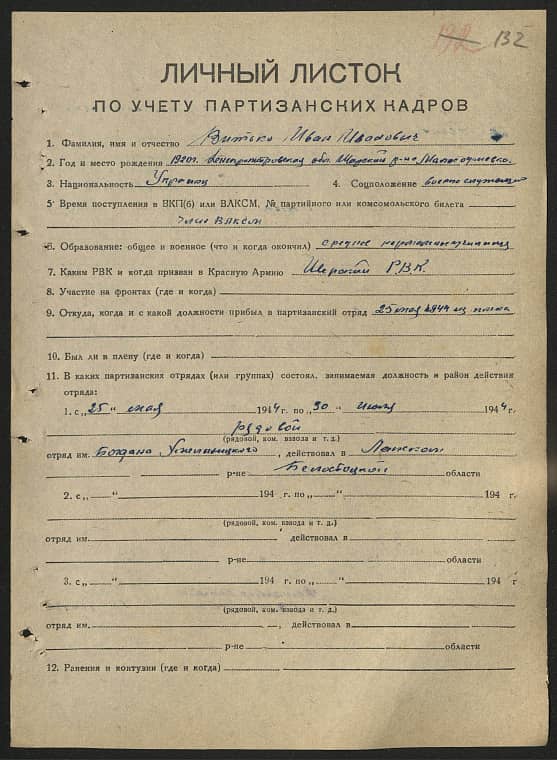 192 132
ЛИЧНЫЙ ЛИСТОК
ПО УЧЕТУ ПАРТИЗАНСКИХ КАДРОВ
1. Фамилия, имя и отчество Витько Иван Иванович
2. Год и место рождения 1920г. Днепропетровская обл. р-н
3. Национальность Украинец 4. Соцположение военнослужащий
5 Время поступления в ВКП(б) или ВЛКСМ, № партийного или комсомольского билета
Член ВЛКСМ
6. Образование: общее и военное (что и когда окончил) среднее
7. Каким РВК и когда призван в Красную Армию Р.В.К.
8. Участие на фронтах (где и когда)
9. Откуда, когда и с какой должности прибыл в партизанский отряд 25 мая 1944 из плена
10. Был ли в плену (где и когда)
11. В каких партизанских отрядах (или группах) состоял, занимаемая должность и район действия
отряда:
1. с „25“ мая 1944 г. по „30“ июля 1944 г.
рядовой
(рядовой, ком. взвода и т. д.)
отряд им. Богдана Хмельницкого, действовал в
р-не Белостоцкой области
2. с „ “ 194 г. по „ “ 194 г.
(рядовой, ком. взвода и т. д.)
отряд им. действовал в
р-не области
3. с „ “ 194 г. по „ “ 194 г
(рядовой, ком. взвода и т. д.)
отряд им. , действовал в
р-не области
12. Ранения и контузии (где и когда)